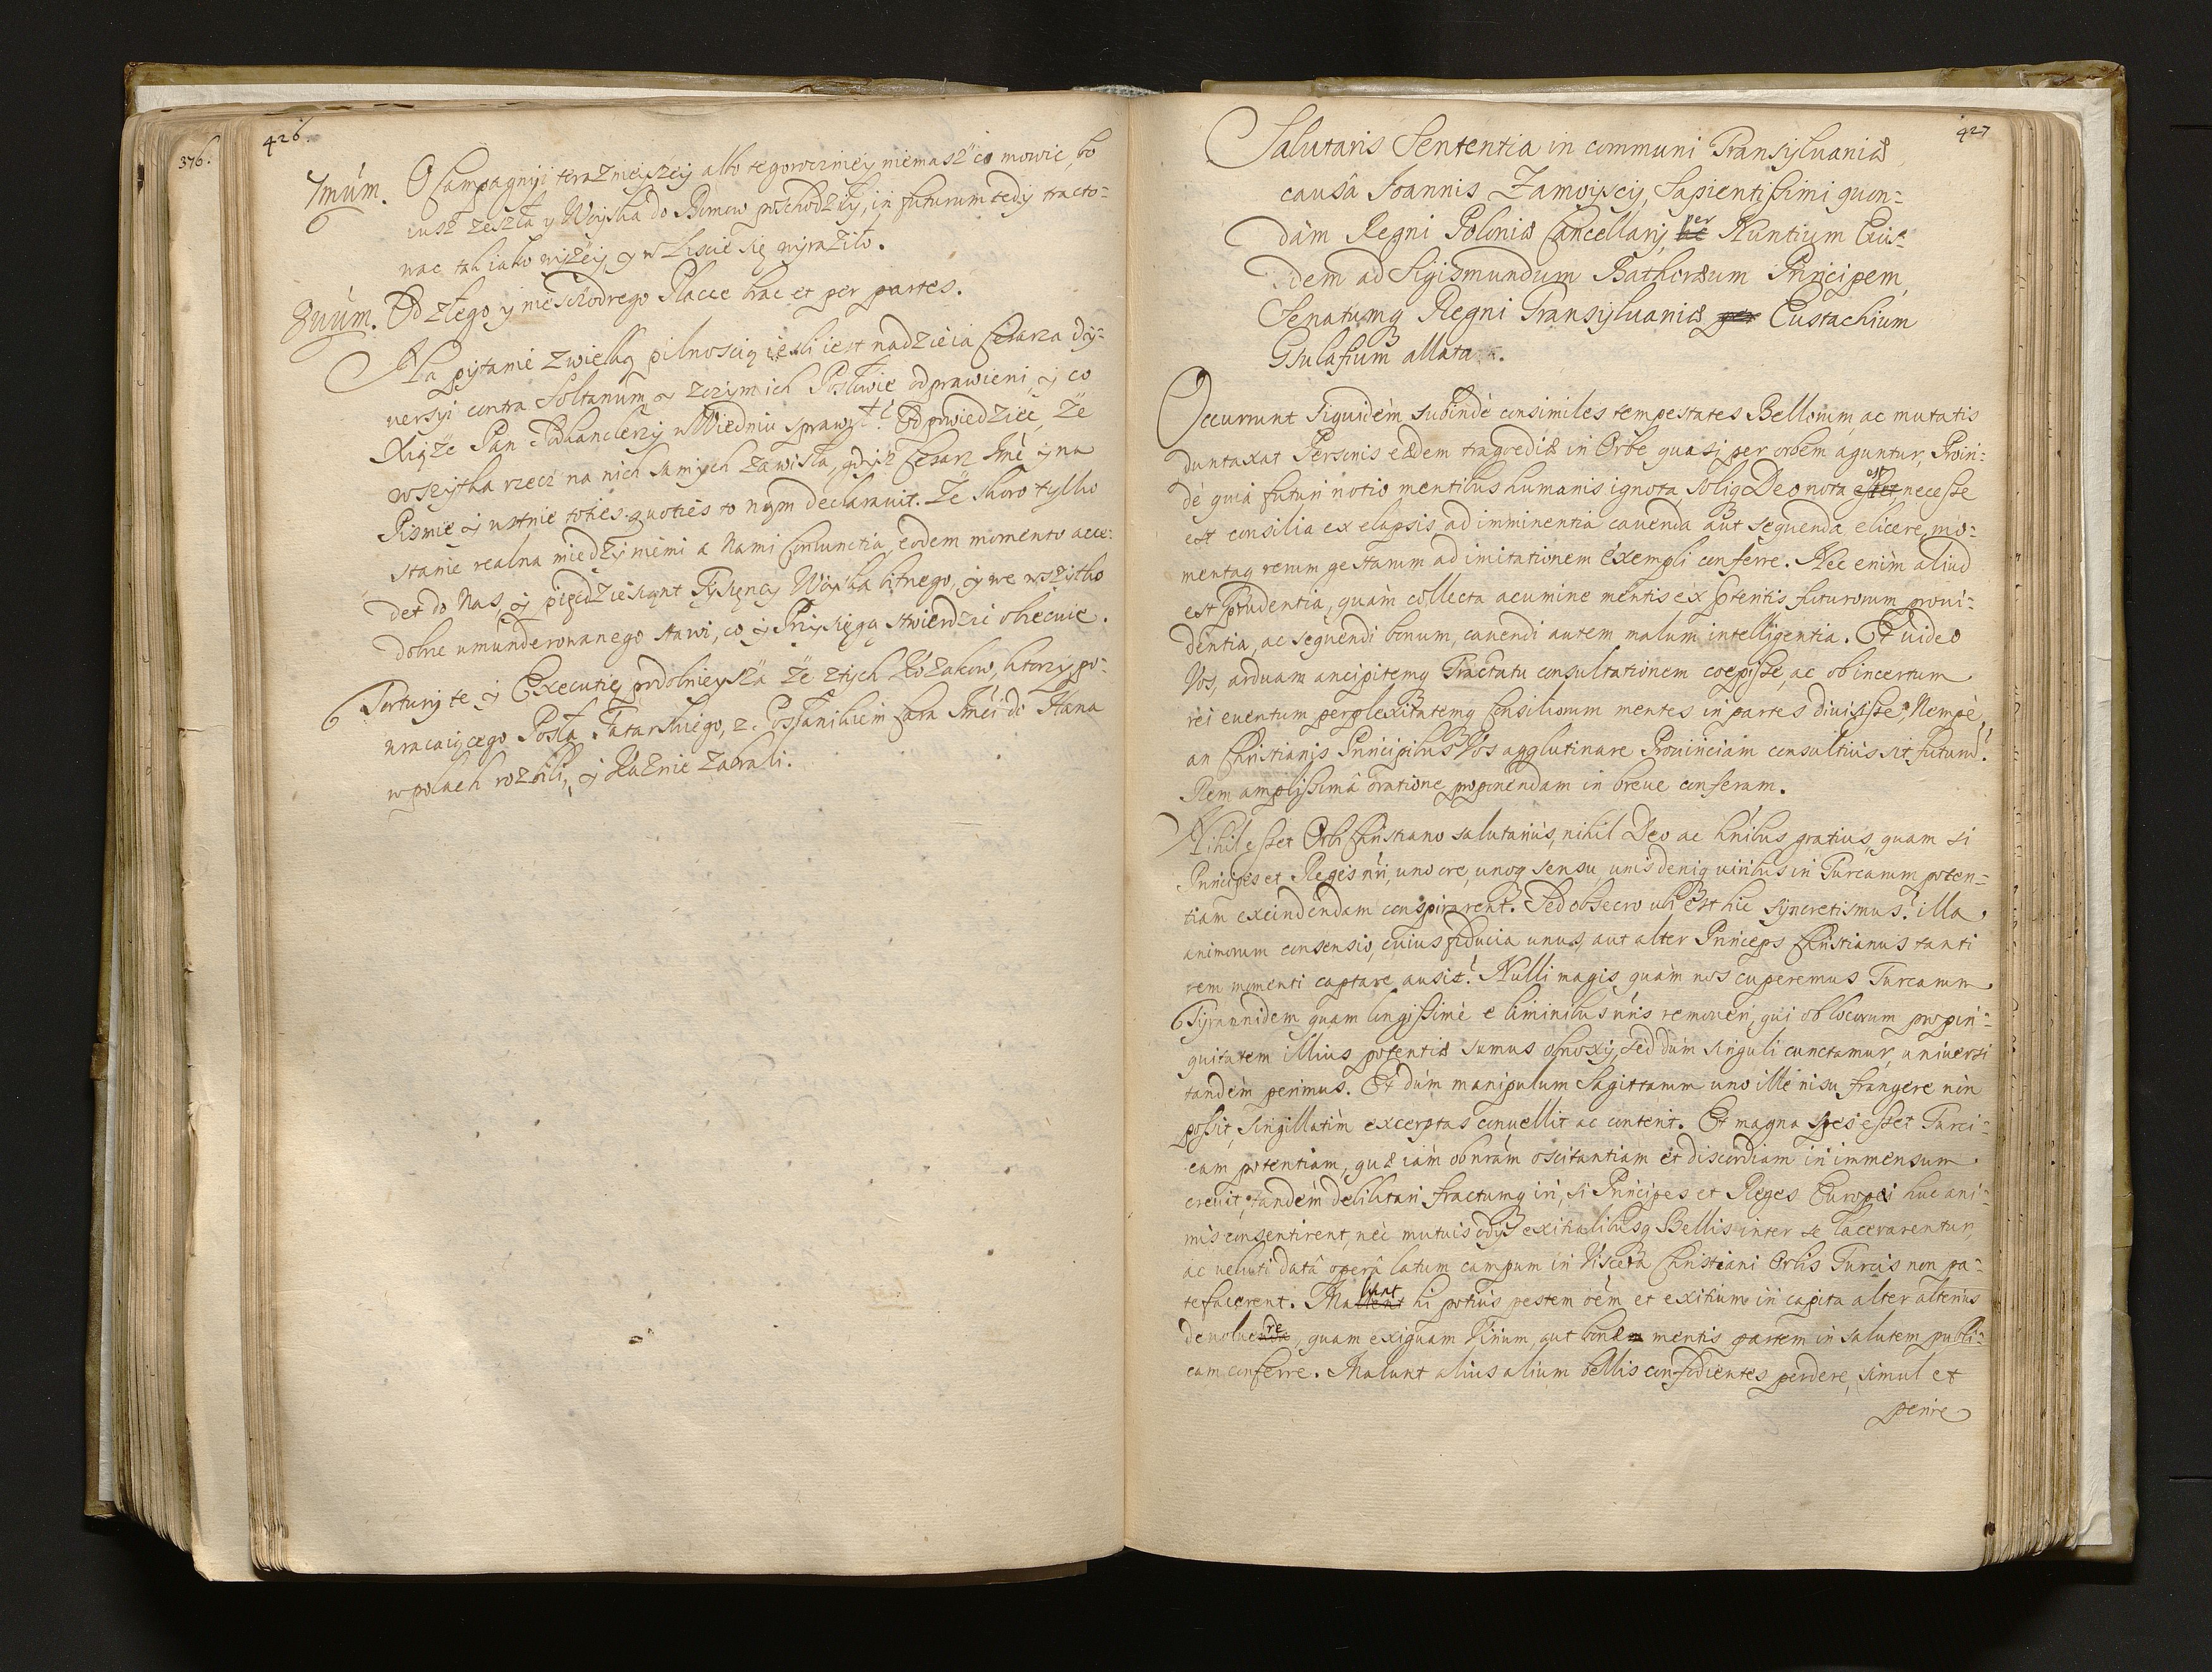 376.
426.
7mum. O Campagnyi teraznieyszey albo tegoroczniey niemasz co mowic, bo
iusz zeszła y Woyska do Domow poschodziły, in futurum tedy tracto=
wac tak iako wyżey, y w Liscie się wyraziło.
8vum. Od złego y nieszczodrego Płacce brac et per partes.
Na pytanie z wielką pilnoscią iesli iest nadzieia Cesarza dy=
versyi contra Soltanum, y z czym ich Posłowie odprawieni, y co
Xiąże Pan Podkanclerzy w Wiedniu sprawił? Odpowiedziec, Że
wszystka rzecz na nich samych zawisła, gdysz Cesarz Jmć y na
Pismie y ustnie toties quoties to nam declaravit. Że skoro tylko
stanie realna miedzy niemi a Nami Coniunctia, eodem momento acce=
det do Nas, y pięcdziesiąnt Tysięncy Woyska bitnego, y we wszytko
dobrze umunderowanego stawi, co y Przysięgą stwierdzic obiecuie.
Torturyte y Executię podobnieysza że z tych Kozakow, ktorzy po=
wracaiącego Posła Tatarskiego, z Posłannikiem Cara Jmci do Hana
w polach rozbili, y Kaznie zabrali.
427
Salutaris Sententia in communi Transylvaniæ
causâ Ioannis Zamoyscij, Sapientissimi quon=
dam Regni Poloniæ Cancellarij, per Nuntium Eius=
dem ad Sigismundum Bathoræum Principem,
Senatumq Regni Transylvaniæ per Eustachium
Gyulafium allata.
Occurrunt siquidèm subindè consimiles tempestates Bellorum, ac mutatis
duntaxat Personis eædem tragoediæ in Orbe quasi per orbem aguntur, Proin=
dè quia futuri notio mentibus humanis ignota, soliq Deo nota est, necesse
est consilia ex elapsis ad imminentia cavenda aut sequenda elicere, mo=
mentaq rerum gestarum ad imitationem exempli conferre. Nec enim aliud
est prudentia, quàm collecta acumine mentis ex pteritis futurorum provi=
dentia, ac sequendi bonum, cavendi autem malum intelligentia. Et video
Vos, arduam ancipitemq Tractatu consultationem coepisse, ac ob incertum
rei eventum perplexitatemq Consiliorum mentes in partes divisisse, Nempè,
an Christianis Principibus Vos agglutinare Provinciam consultius sit futurũ?
Rem amplissimâ oratione proponendam in breve conferam.
Nihil esset Orbi Christiano salutarius, nihil Deo ac hnibus gratius, quam si
Principes et Reges nri, uno ore, unoq sensu, unis deniq viribus in Turcarum poten=
tiam exscindendam conspirarent. Sed obsecro ubi est hic syncretismus? illa
animorum consensio, cuius fiducia unus, aut alter Princeps Christianus tanti
rem momenti captare ausit? Nulli magis quàm nos cuperemus Turcarum
Tyrannidem quam longissimè e liminibus nris removeri, qui ob locorum propin=
quitatem illius potentiæ sumus obnoxij, sed dum singuli cunctamur, universi
tandem perimus. Et dum manipulum Sagittarum uno ille nisu frangere non
possit, singillatim excerptas convellit ac conterit. Et magna spes esset Turci=
cam potentiam, quæ iàm ob nram oscitantiam et discordiam in immensum
crevit, tandèm debilitari fractumq iri, si Principes et Reges Europæi huc ani=
mis consentirent, nèc mutuis odijs exitialibusq Bellis inter se lacerarentur,
ac veluti datâ operâ latum campum in Viscera Christiani Orbis Turcis non pa=
tefacerent. Malunt hi potius pestem oem et exitium in capita alter alterius
devolvere, quam exiguam Virium, aut bonæ mentis partem in salutem publi=
cam conferre. Malunt alius alium bellis confodientes perdere, simul et
perire